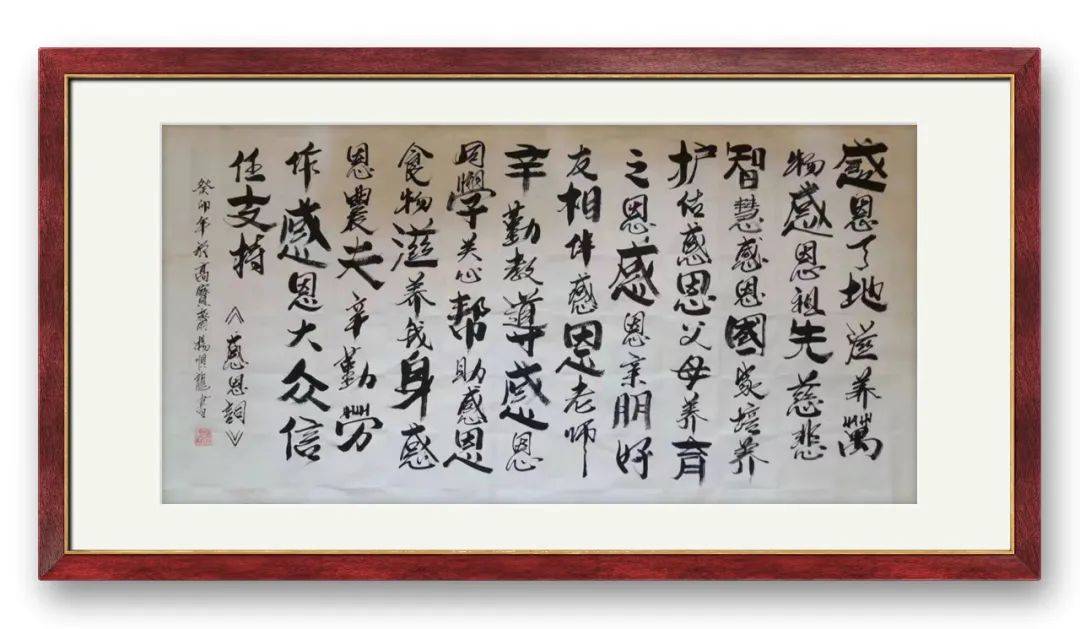 感恩天地滋养萬
物感恩祖先慈悲
智慧感恩國家培养
护佑感恩父母养育
之恩感恩亲朋好
友相伴感恩老师
辛勤教導感恩
同學关心帮助感恩
食物滋养我身感
恩農夫辛勤劳
作感恩大众信
任支持《感恩詞》
癸卯年於高寶齋楊龍书